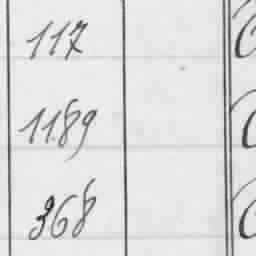 117
1189
368